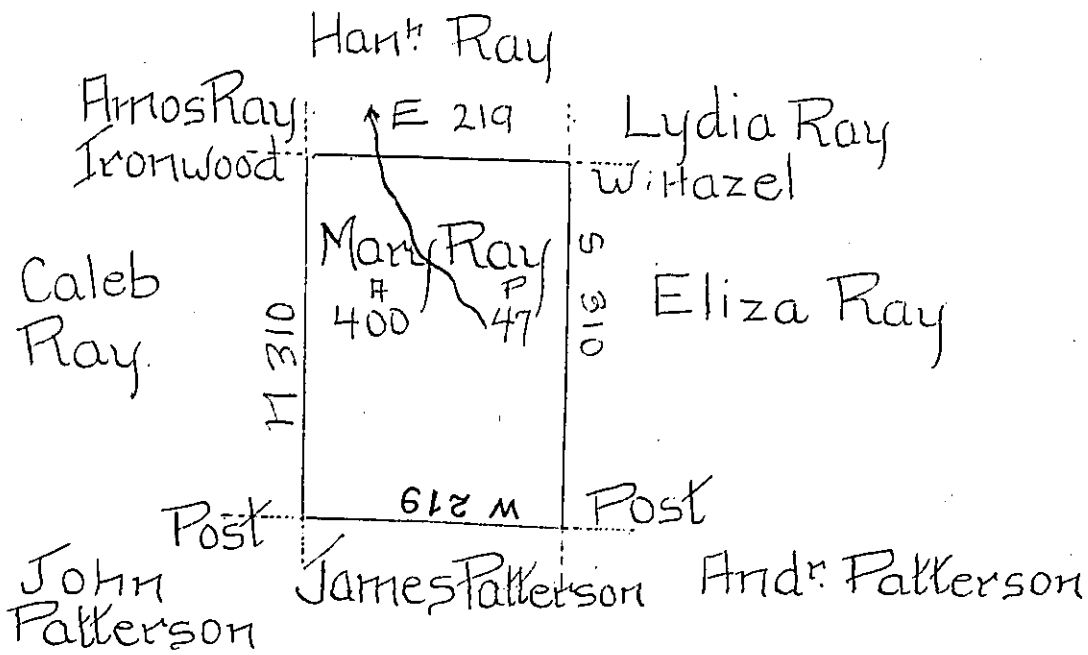 Hanʰ. Ray
Amos Ray
Ironwood
E 219
Lydia Ray
W. Hazel
Caleb
Ray.
N 310
Mary Ray
A P
400 47
S 310
Eliza Ray
Post
W 219
Post
John
Patterson
James Patterson
Andʳ. Patterson